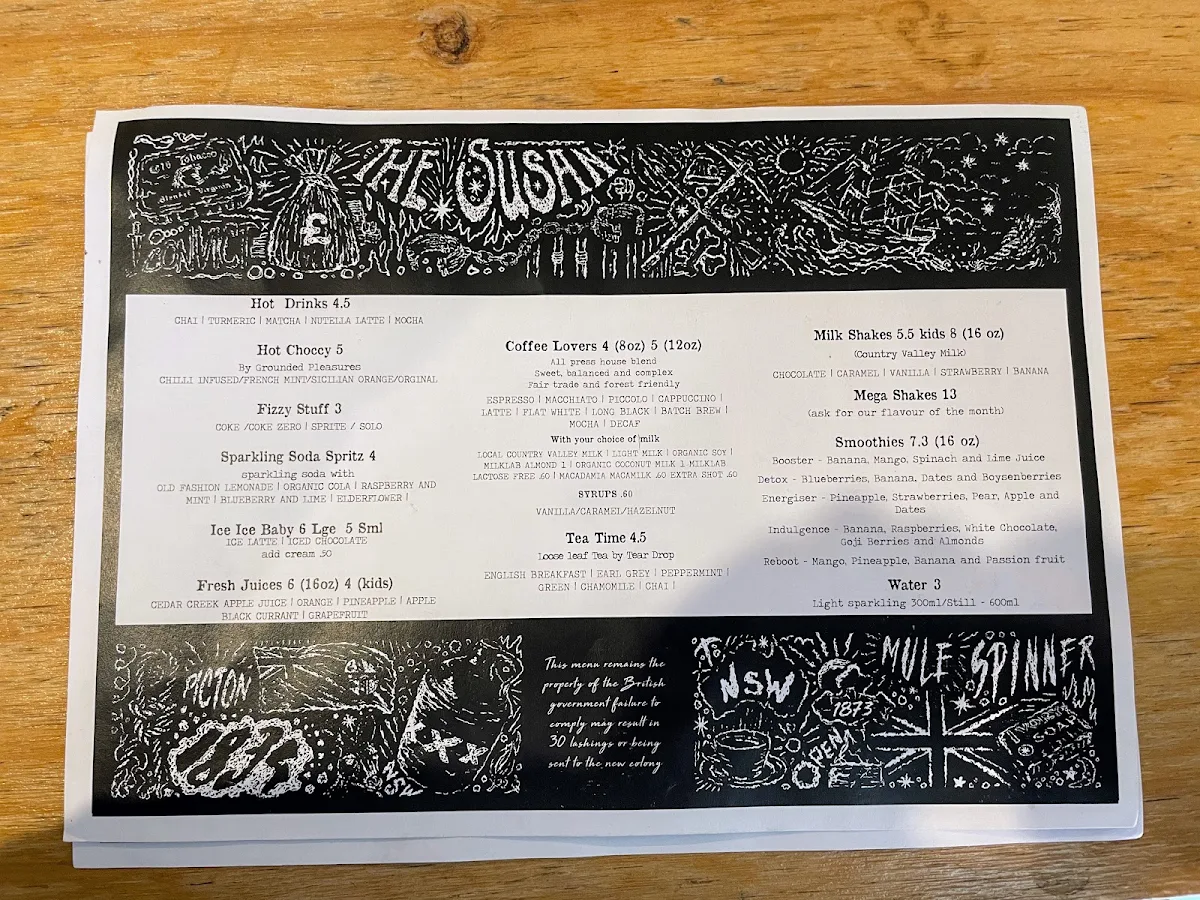 Gold Tobacco
Blended
Virginia
CONVICT
£
THE SUSAN
Hot Drinks 4.5
CHAI | TURMERIC | MATCHA | NUTELLA LATTE | MOCHA
Hot Choccy 5
By Grounded Pleasures
CHILLI INFUSED/FRENCH MINT/SICILIAN ORANGE/ORGINAL
Fizzy Stuff 3
COKE /COKE ZERO | SPRITE / SOLO
Sparkling Soda Spritz 4
sparkling soda with
OLD FASHION LEMONADE | ORGANIC COLA | RASPBERRY AND
MINT | BLUEBERRY AND LIME | ELDERFLOWER |
Ice Ice Baby 6 Lge 5 Sml
ICE LATTE | ICED CHOCOLATE
add cream .50
Fresh Juices 6 (16oz) 4 (kids)
CEDAR CREEK APPLE JUICE | ORANGE | PINEAPPLE | APPLE
BLACK CURRANT | GRAPEFRUIT
Coffee Lovers 4 (8oz) 5 (12oz)
All press house blend
Sweet, balanced and complex
Fair trade and forest friendly
ESPRESSO | MACCHIATO | PICCOLO | CAPPUCCINO |
LATTE | FLAT WHITE | LONG BLACK | BATCH BREW |
MOCHA | DECAF
With your choice of milk
LOCAL COUNTRY VALLEY MILK | LIGHT MILK | ORGANIC SOY |
MILKLAB ALMOND 1 | ORGANIC COCONUT MILK 1 MILKLAB
LACTOSE FREE .60 | MACADAMIA MACAMILK .60 EXTRA SHOT .60
SYRUPS .60
VANILLA/CARAMEL/HAZELNUT
Tea Time 4.5
Loose leaf Tea by Tear Drop
ENGLISH BREAKFAST | EARL GREY | PEPPERMINT |
GREEN | CHAMOMILE | CHAI |
Milk Shakes 5.5 kids 8 (16 oz)
(Country Valley Milk)
CHOCOLATE | CARAMEL | VANILLA | STRAWBERRY | BANANA
Mega Shakes 13
(ask for our flavour of the month)
Smoothies 7.3 (16 oz)
Booster - Banana, Mango, Spinach and Lime Juice
Detox - Blueberries, Banana, Dates and Boysenberries
Energiser - Pineapple, Strawberries, Pear, Apple and
Dates
Indulgence - Banana, Raspberries, White Chocolate,
Goji Berries and Almonds
Reboot - Mango, Pineapple, Banana and Passion fruit
Water 3
Light sparkling 300ml/Still - 600ml
PICTON
XXX
NSW
This menu remains the
property of the British
government failure to
comply may result in
30 lashings or being
sent to the new colony
NSW
1873
OPEN
MULE SPINNER